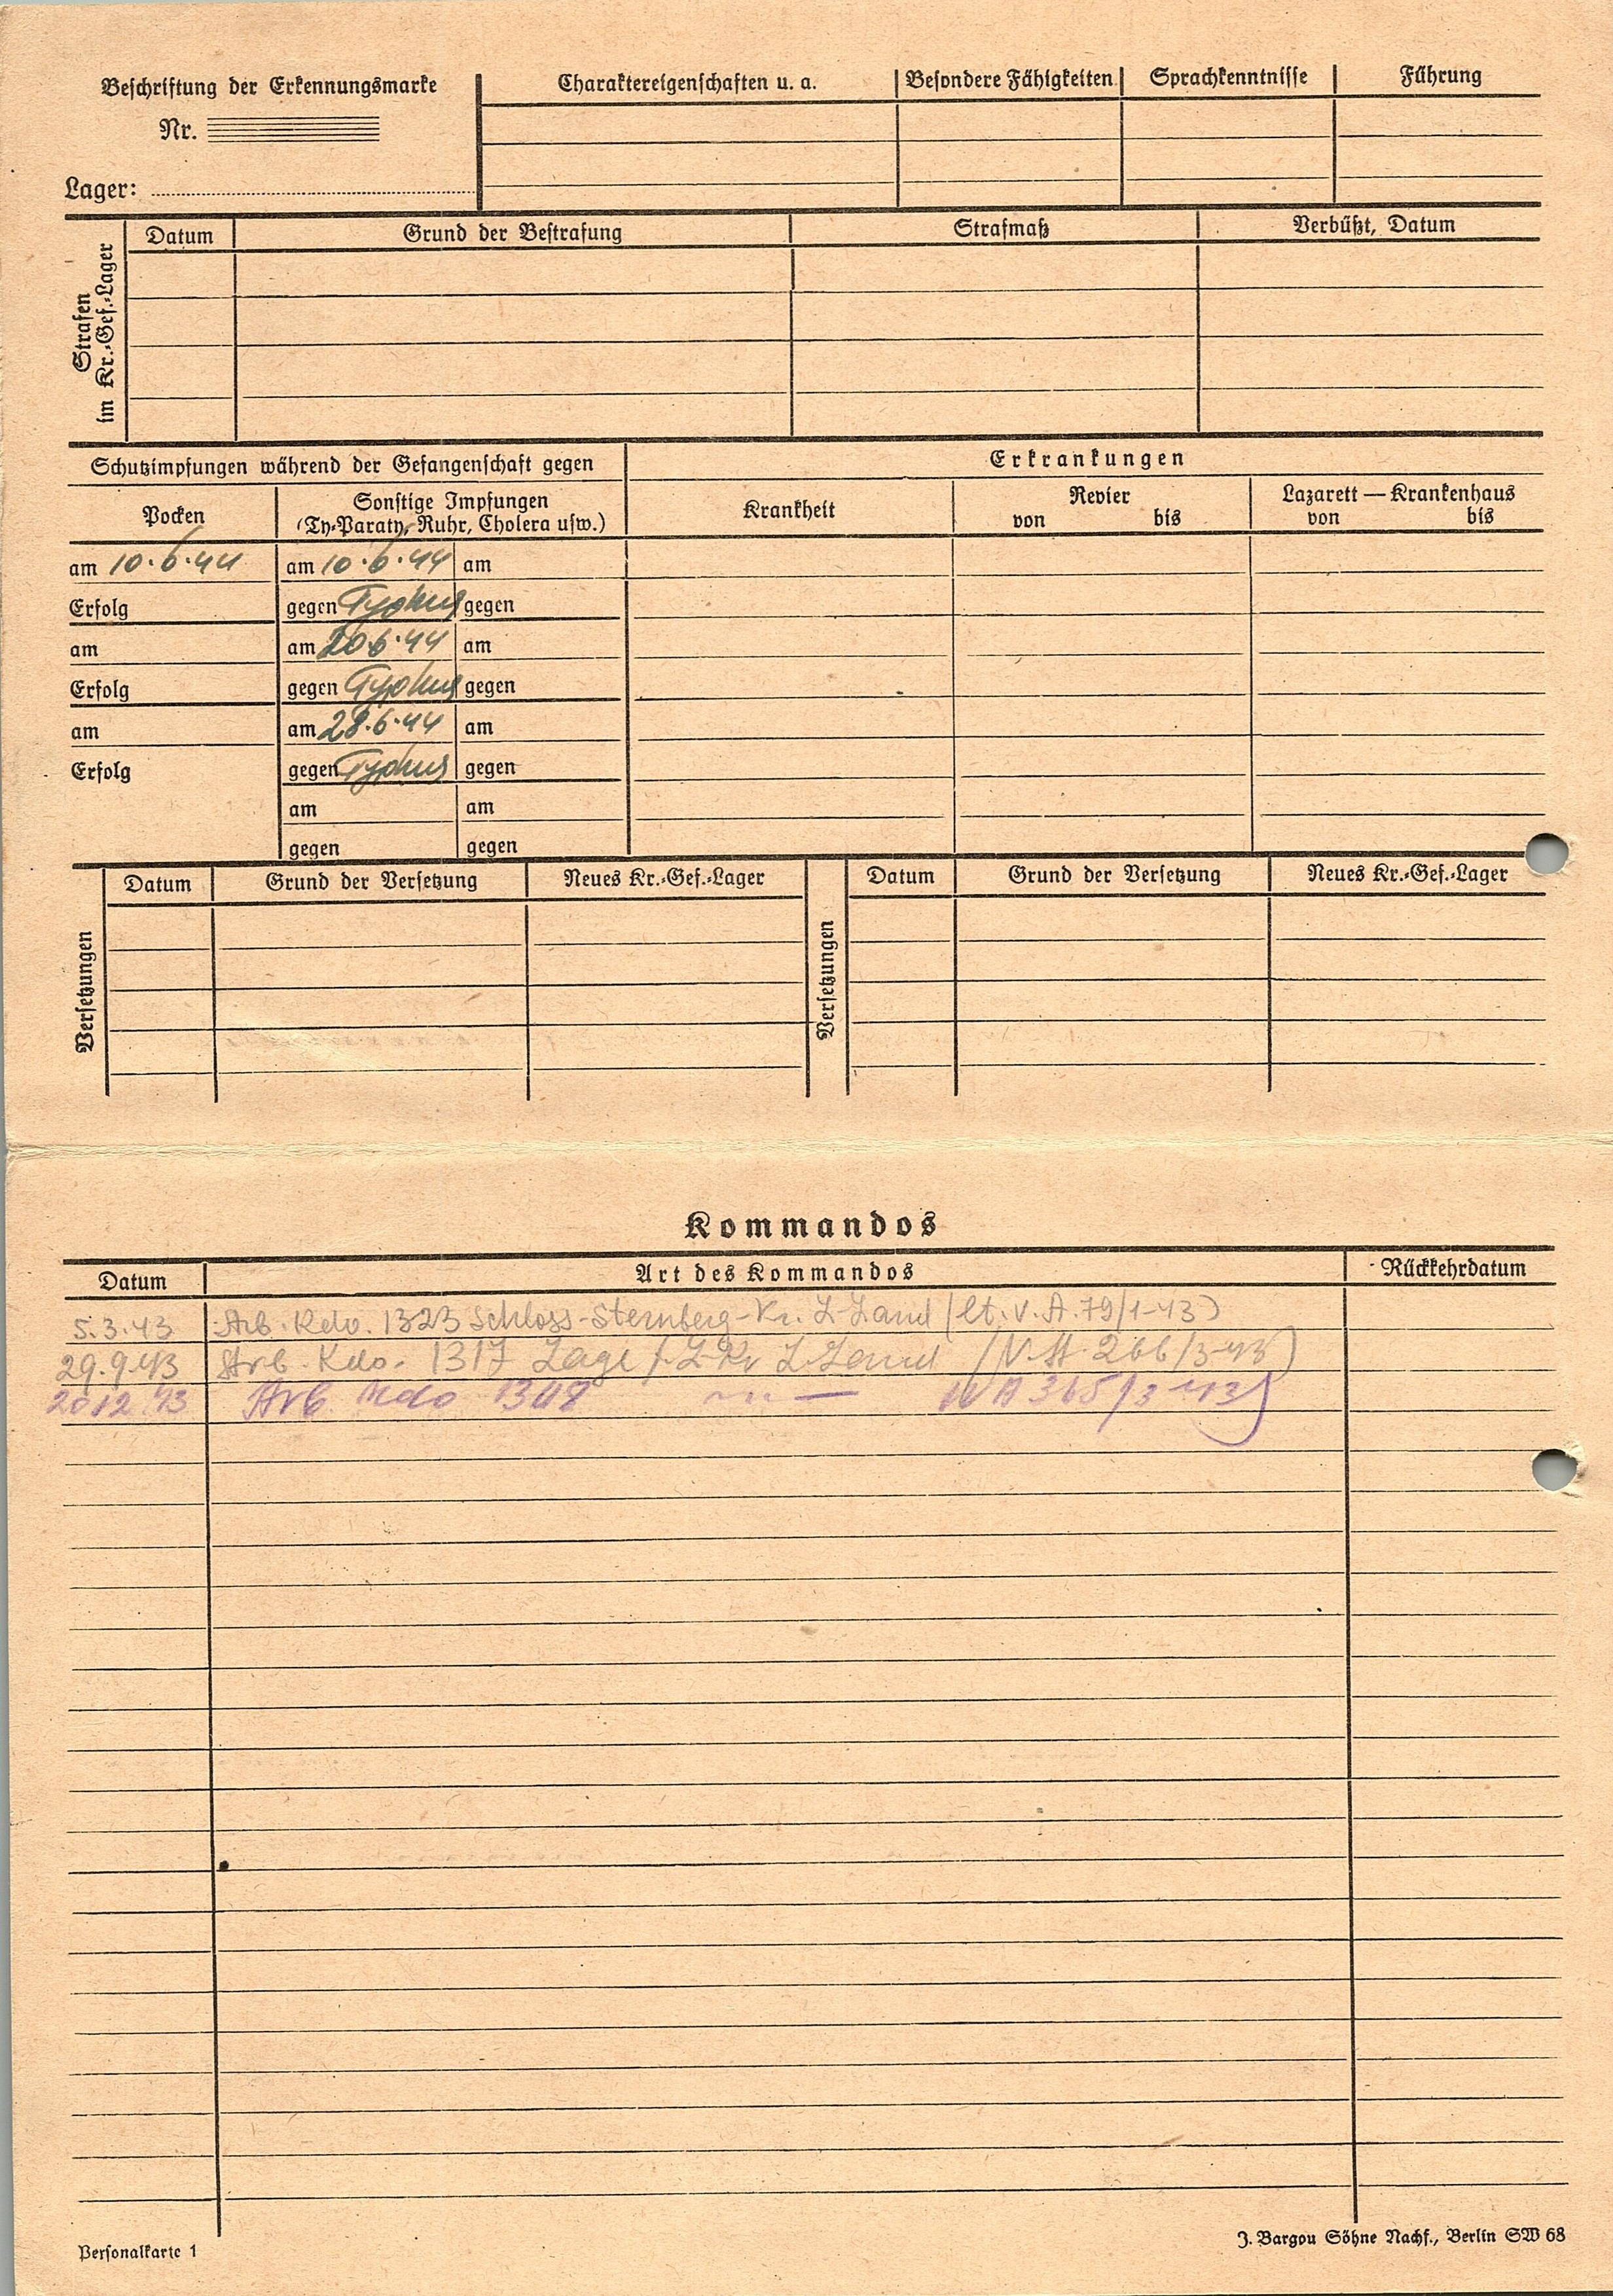 Beschriftung der Erkennungsmarke
Nr.
Lager:
Charaktereigenschaften u. a.
Besondere Fähigkeiten
Sprachkenntnisse
Führung
Strafen
im Kr.-Gef.-Lager
Datum
Grund der Bestrafung
Strafmaß
Verbüßt, Datum
Schutzimpfungen während der Gefangenschaft gegen
Erkrankungen
Pocken
Sonstige Impfungen
(Ty-Paraty, Ruhr, Cholera usw.)
Krankheit
Revier
von bis
Lazarett — Krankenhaus
von bis
am 10.6.44 am 10.6.44 am
Erfolg gegen Typhus gegen
am am 20.6.44 am
Erfolg gegen Typhus gegen
am am 28.6.44 am
Erfolg gegen Typhus gegen
am am
gegen gegen
Versetzungen
Datum Grund der Versetzung Neues Kr.-Gef.-Lager
Versetzungen
Datum Grund der Versetzung Neues Kr.-Gef.-Lager
Kommandos
Datum Art des Kommandos Rückkehrdatum
5.3.43 Arb. Kdo. 1323 Schloss-Sternberg-Kr. L-Land (lt. V. A. 79/1-43)
29.9.43 Arb. Kdo. 1317 Lage /L Kr L-Land (V. A. 266/3-43)
20.12.43 Arb. Kdo 1308 — " — VA 365/3-43)
Personalkarte 1
J. Bargou Söhne Nachf., Berlin SW 68